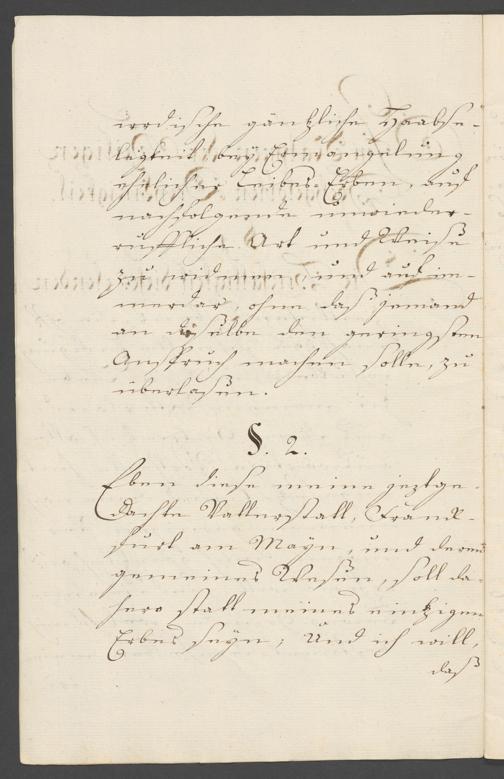 irrdische gäntzliche Haabse-
ligkeit bey Ermangelung
ehelicher Leibes-Erben, auf
nachfolgende unwieder-
ruffliche Art und Weise
zu widmen, und auf im-
merdar, ohne daß jemand
an dieselbe den geringsten
Anspruch machen solle, zu
überlaßen.
§. 2.
Eben diese meine jeztge-
dachte Vatterstatt, Franck-
furt am Mayn, und deren
gemeines Weßen, soll da-
hero statt meines eintzigen
Erbes seyn; Und ich will,
daß